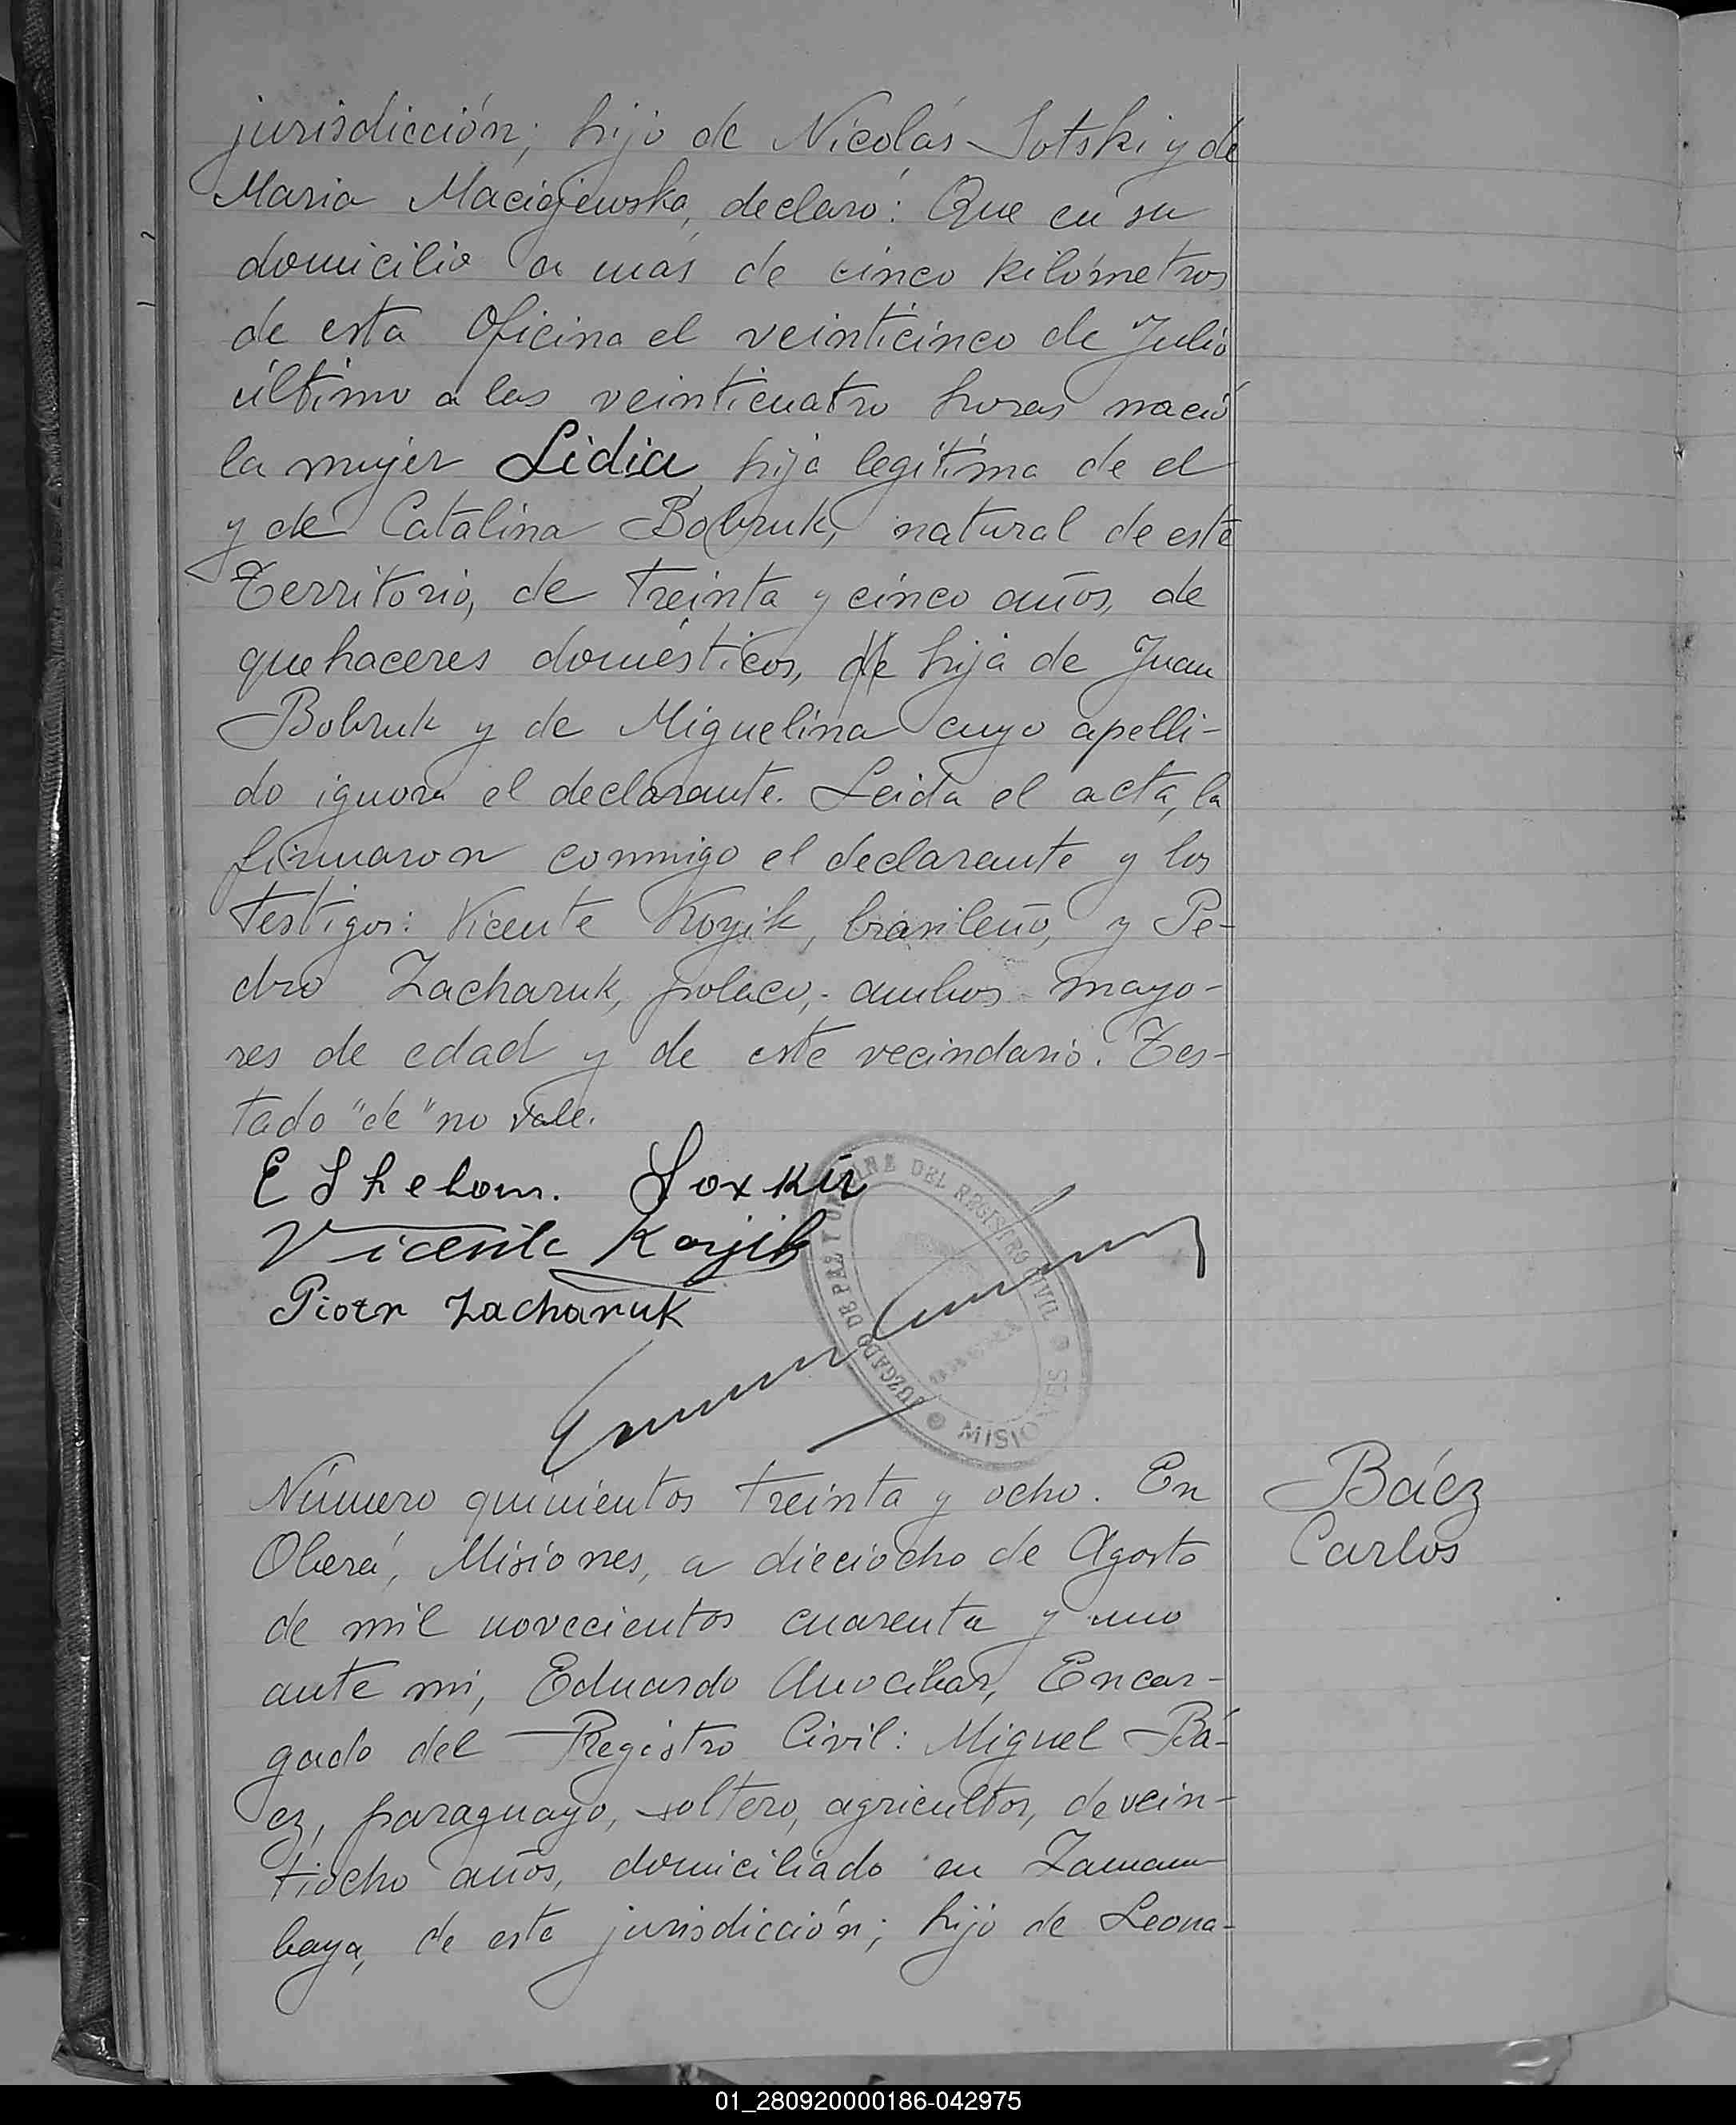 jurisdicción; hijo de Nicolás Sotski y de
Maria Maciejewska, declaró: Que en su
domicilio a más de cinco kilómetros
de esta Oficina el veinticinco de Julio
último a las veinticuatro horas nació
la mujer Lidia, hija legítima de el
y de Catalina Bobruk, natural de este
Territorio, de treinta y cinco años, de
quehaceres domésticos, de hija de Juan
Bobruk y de Miguelina cuyo apelli-
do ignora el declarante. Leida el acta, la
firmaron conmigo el declarante y los
testigos: Vicente Koyik, brasileño, y Pe-
dro Zacharuk, polaco, ambos mayo-
res de edad y de este vecindario. Tes-
tado "de" no vale.
Vicente Koyik
Piotr Zacharuk
JUZGADO DE PAZ Y OFICINA DEL REGISTRO CIVIL
MISIONES
Número quinientos treinta y ocho. En
Oberá, Misiones, a dieciocho de Agosto
de mil novecientos cuarenta y uno
ante mi, Eduardo Anocibar, Encar-
gado del Registro Civil: Miguel Bá-
ez, paraguayo, soltero, agricultor, de vein-
tiocho años, domiciliado en Zamam
baya, de este jurisdicción; hijo de Leona-
Báez
Carlos
01_280920000186-042975